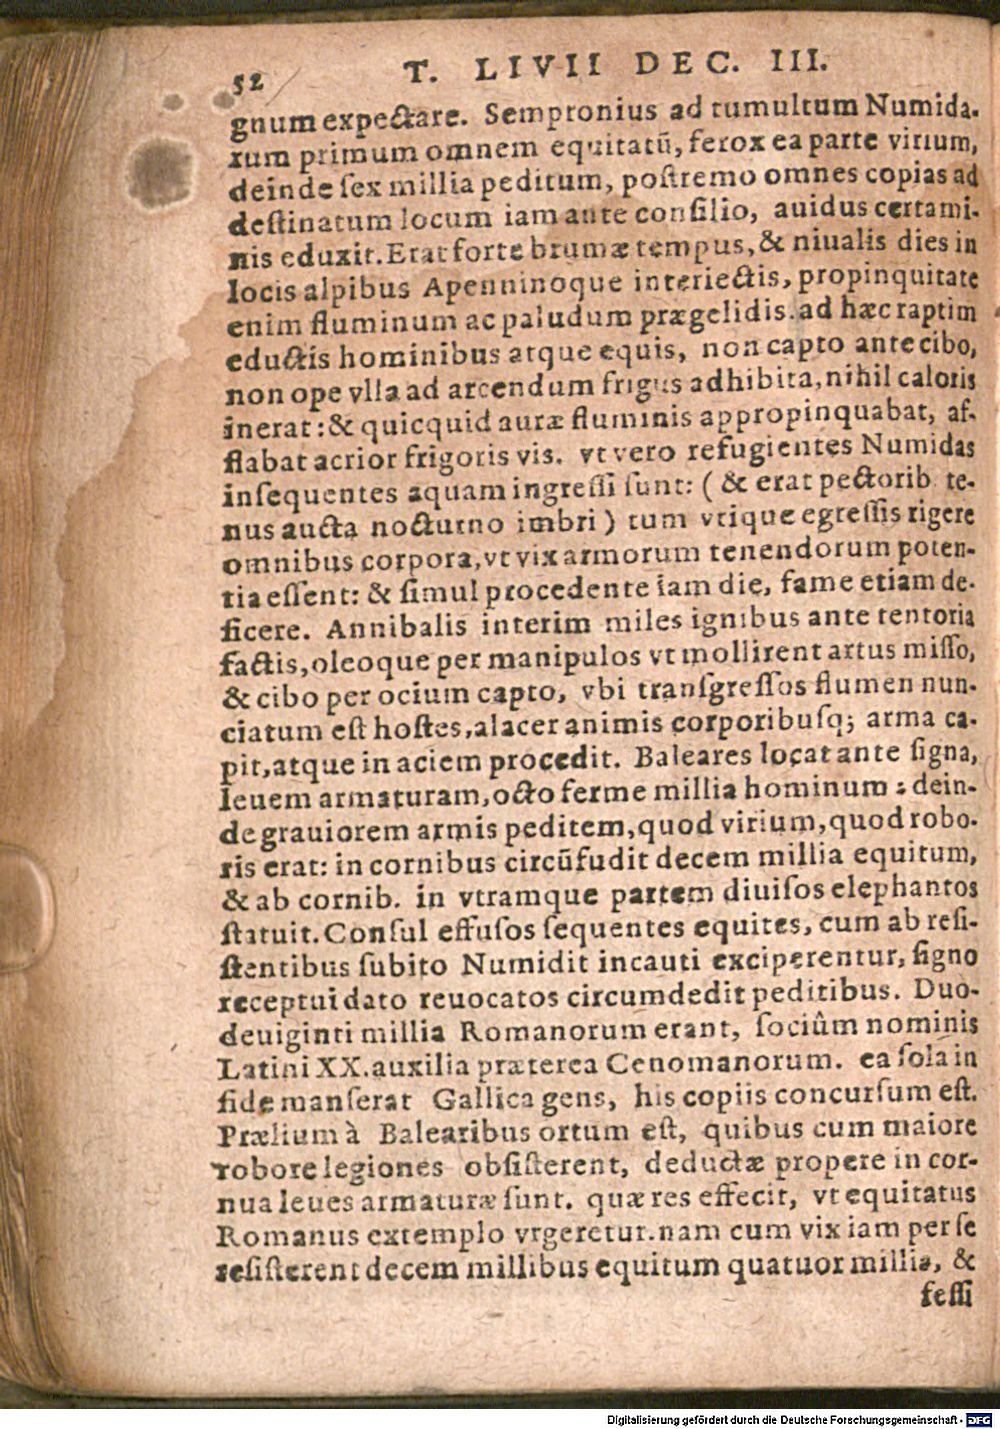 52
T. LIVII DEC. III.
gnum expectare. Sempronius ad tumultum Numida-
rum primum omnem equitatū, ferox ea parte virium,
deinde sex millia peditum, postremo omnes copias ad
destinatum locum iam ante consilio, auidus certami-
nis eduxit. Erat forte brumæ tempus, & niualis dies in
locis alpibus Apenninoque interiectis, propinquitate
enim fluminum ac paludum prægelidis. ad hæc raptim
eductis hominibus atque equis, non capto ante cibo,
non ope vlla ad arcendum frigus adhibita, nihil caloris
inerat: & quicquid auræ fluminis appropinquabat, af-
flabat acrior frigoris vis. vt vero refugientes Numidas
insequentes aquam ingressi sunt: (& erat pectorib. te-
nus aucta nocturno imbri) tum vtique egressis rigere
omnibus corpora, vt vix armorum tenendorum poten-
tia essent: & simul procedente iam die, fame etiam de-
ficere. Annibalis interim miles ignibus ante tentoria
factis, oleoque per manipulos vt mollirent artus misso,
& cibo per ocium capto, vbi transgressos flumen nun-
ciatum est hostes, alacer animis corporibusq; arma ca-
pit, atque in aciem procedit. Baleares locat ante signa,
leuem armaturam, octo ferme millia hominum: dein-
de grauiorem armis peditem, quod virium, quod robo-
ris erat: in cornibus circūfudit decem millia equitum,
& ab cornib. in vtramque partem diuisos elephantos
statuit. Consul effusos sequentes equites, cum ab resi-
stentibus subito Numidit incauti exciperentur, signo
receptui dato reuocatos circumdedit peditibus. Duo-
deuiginti millia Romanorum erant, sociûm nominis
Latini XX. auxilia præterea Cenomanorum. ea sola in
fide manserat Gallica gens, his copiis concursum est.
Prælium à Balearibus ortum est, quibus cum maiore
robore legiones obsisterent, deductæ propere in cor-
nua leues armaturæ sunt. quæ res effecit, vt equitatus
Romanus extemplo vrgeretur. nam cum vix iam per se
resisterent decem millibus equitum quatuor millia, &
fessi
Digitalisierung gefördert durch die Deutsche Forschungsgemeinschaft - DFG